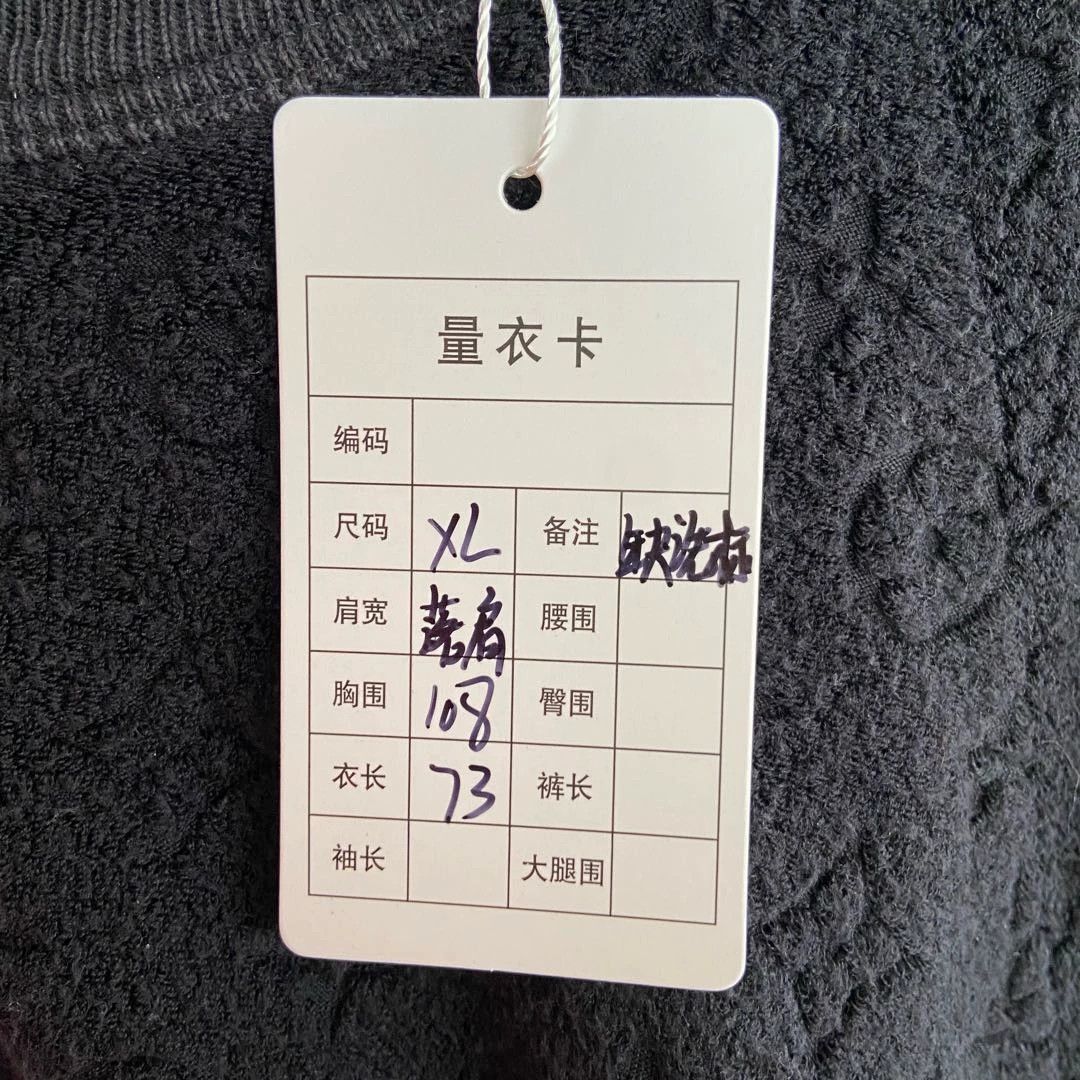 量衣卡
编码
尺码 XL 备注 缺洗标
肩宽 落肩 腰围
胸围 108 臀围
衣长 73 裤长
袖长 大腿围